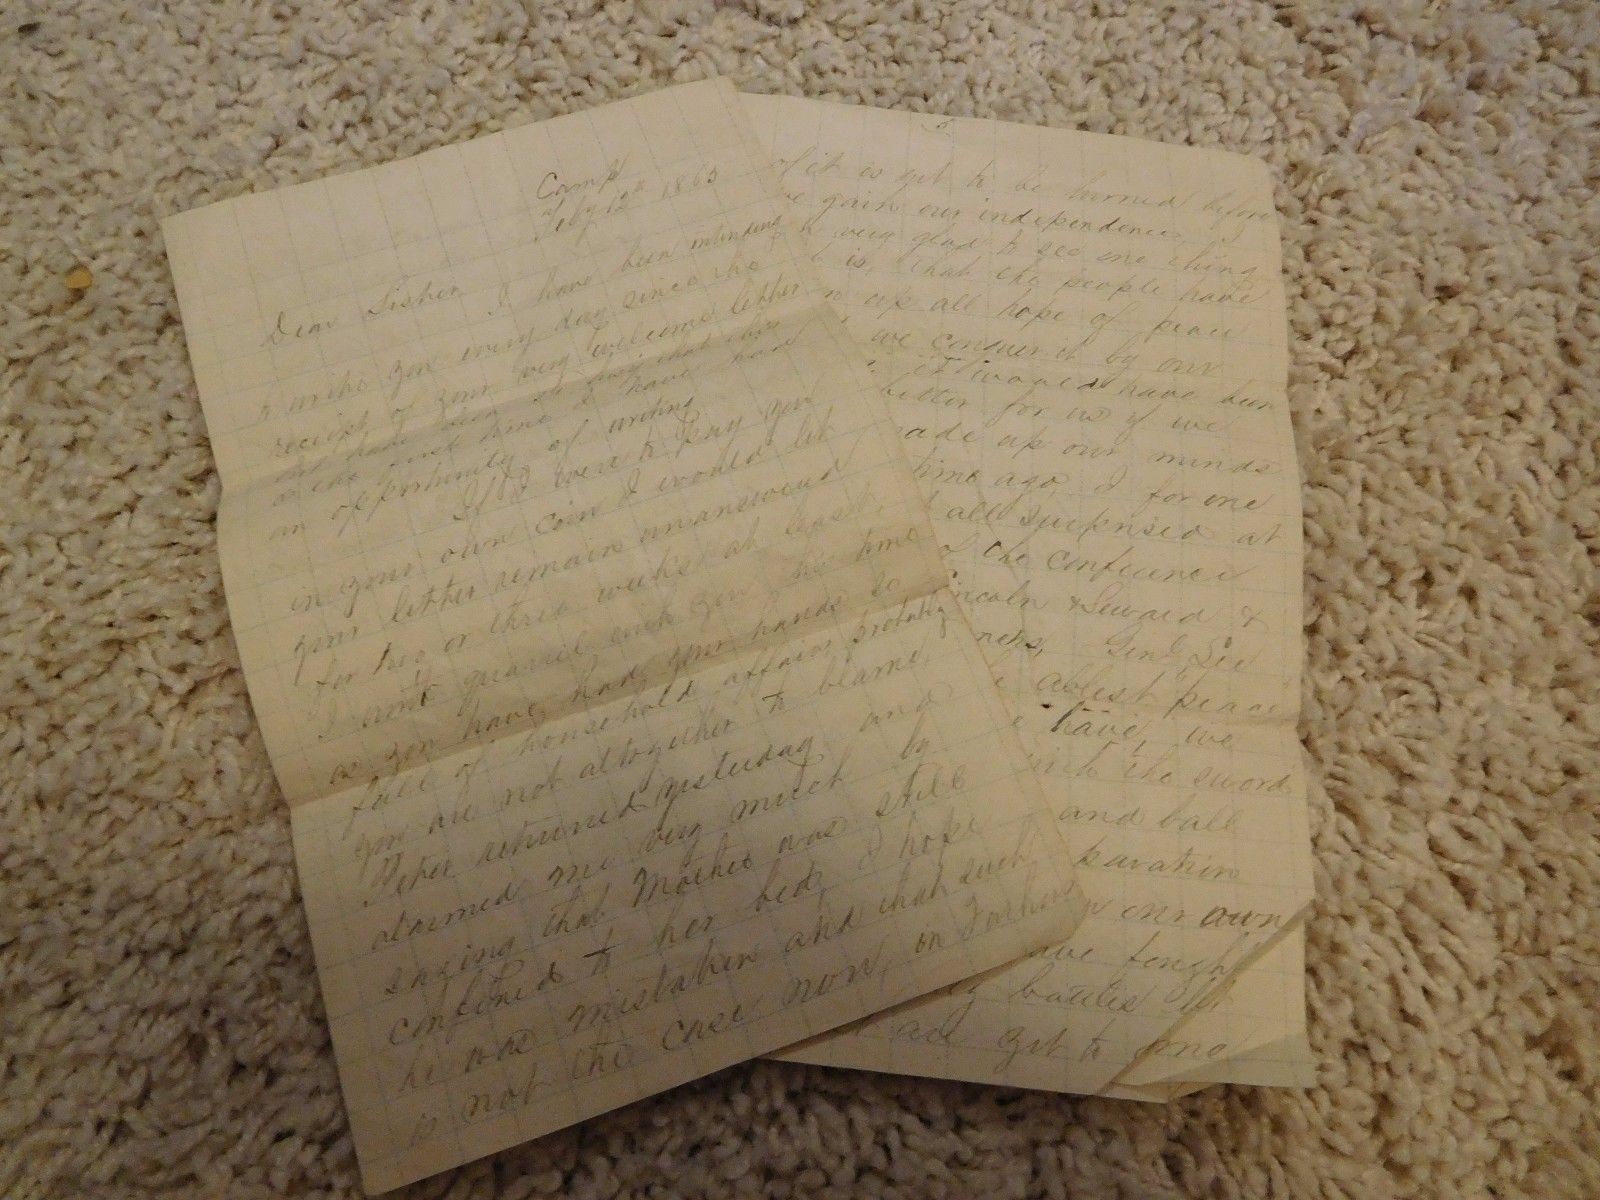 Camp
Feby 12th 1865
Dear Sister
I have been intending
to write you every day since the
receipt of your very welcome letter
and have been so that this
is the first time I have had
an opportunity of writing
If I were to pay you
in your own coin I would let
your letter remain unanswered
for two or three weeks at least,
I quarrel with you this time
as you have had your hands so
full of household affairs probably
you are not altogether to blame,
returned yesterday and
alarmed me very much by
saying that Mother was still
confined to her bed, I hope
he was mistaken and that such
is not the case now, in
5
of it is yet to be before
we gain our independence, I
very glad to see one thing
is, that the people have
up all hope of peace
we conquer it by our
it would have been
better for us if we
made up our minds
time ago, I for one
all surprised at
of the conference
Lincoln & Seward &
Genl Lee
ablest peace
have, we
with the sword
and ball
our own
have fought
battles
yet to